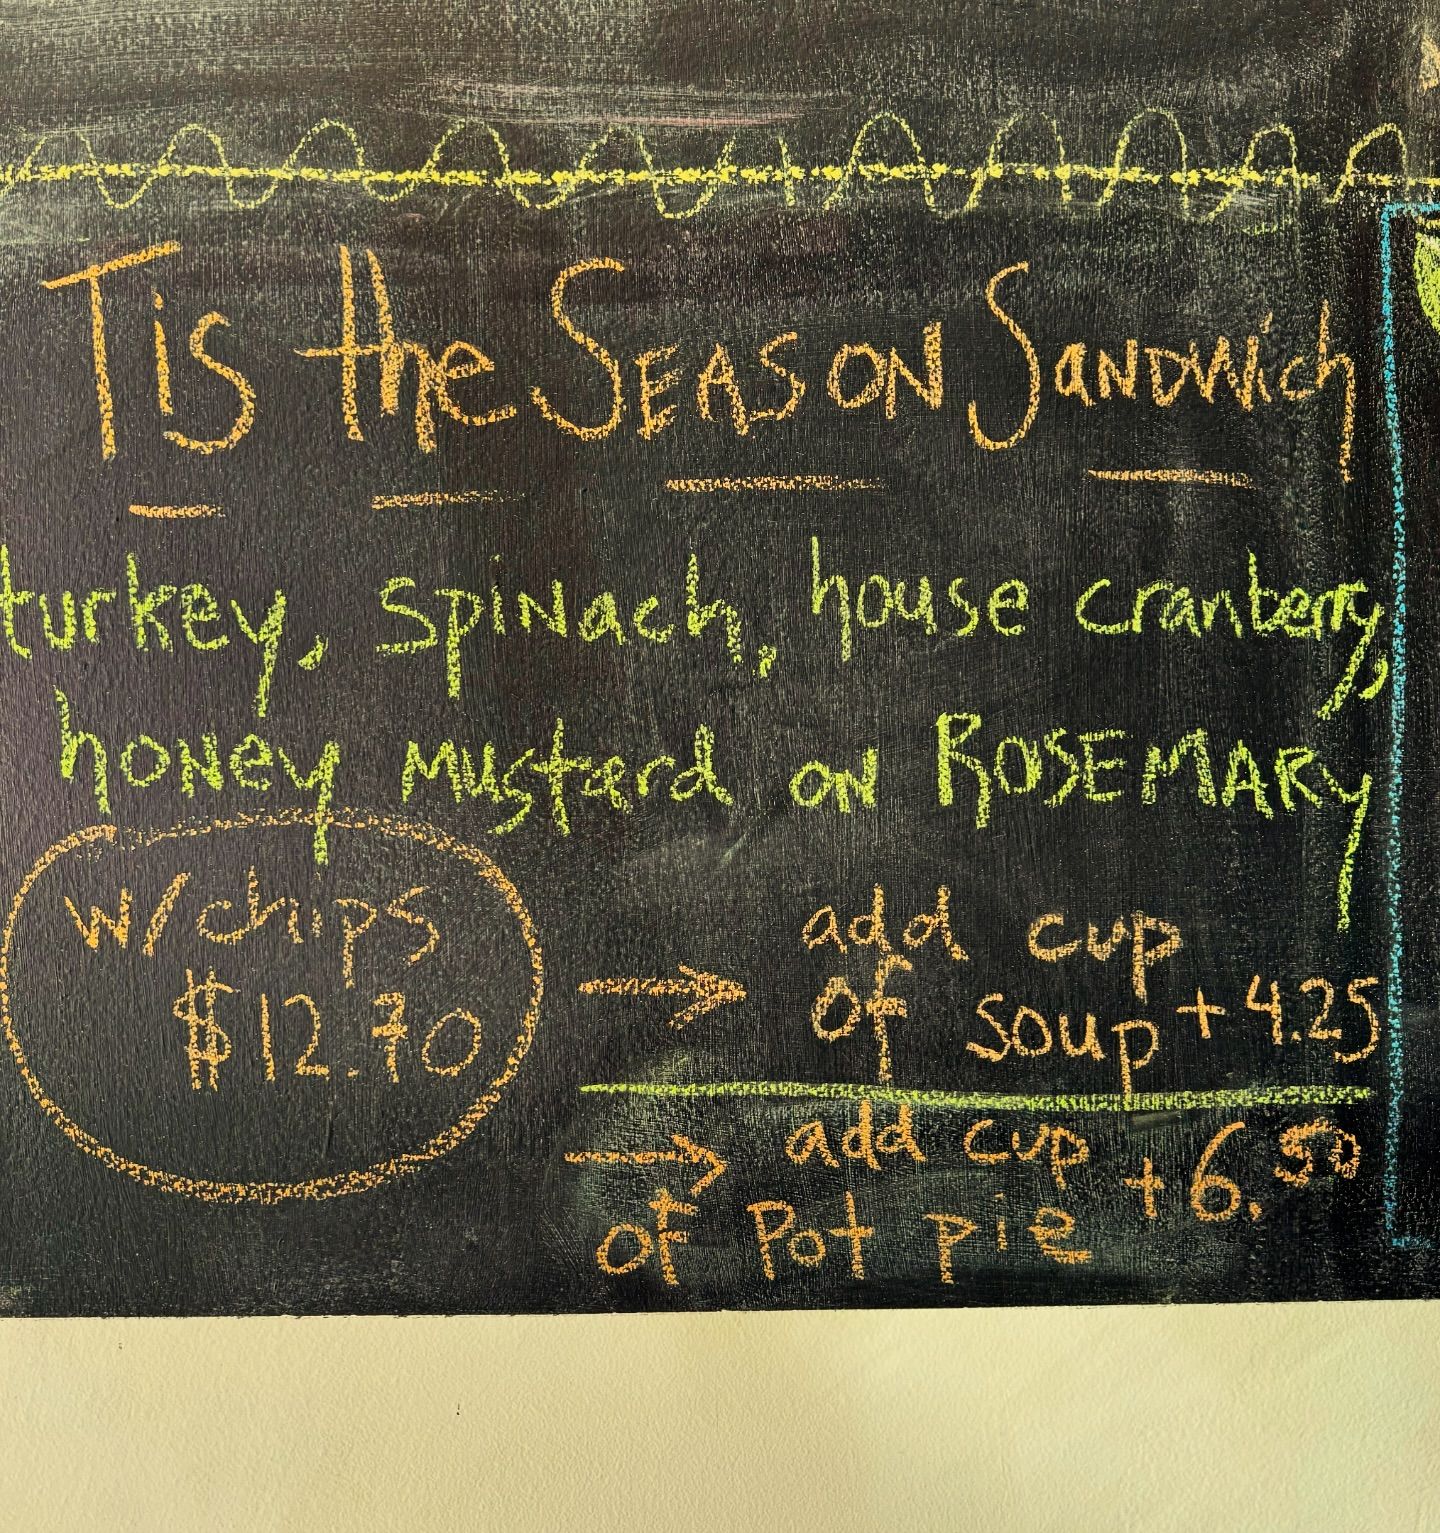 Tis the SEASON SANDWich
turkey, spinach, house cranberry,
honey mustard on ROSEMARY
w/chips
$12.70
add cup
of soup +4.25
add cup
of Pot pie +6.50